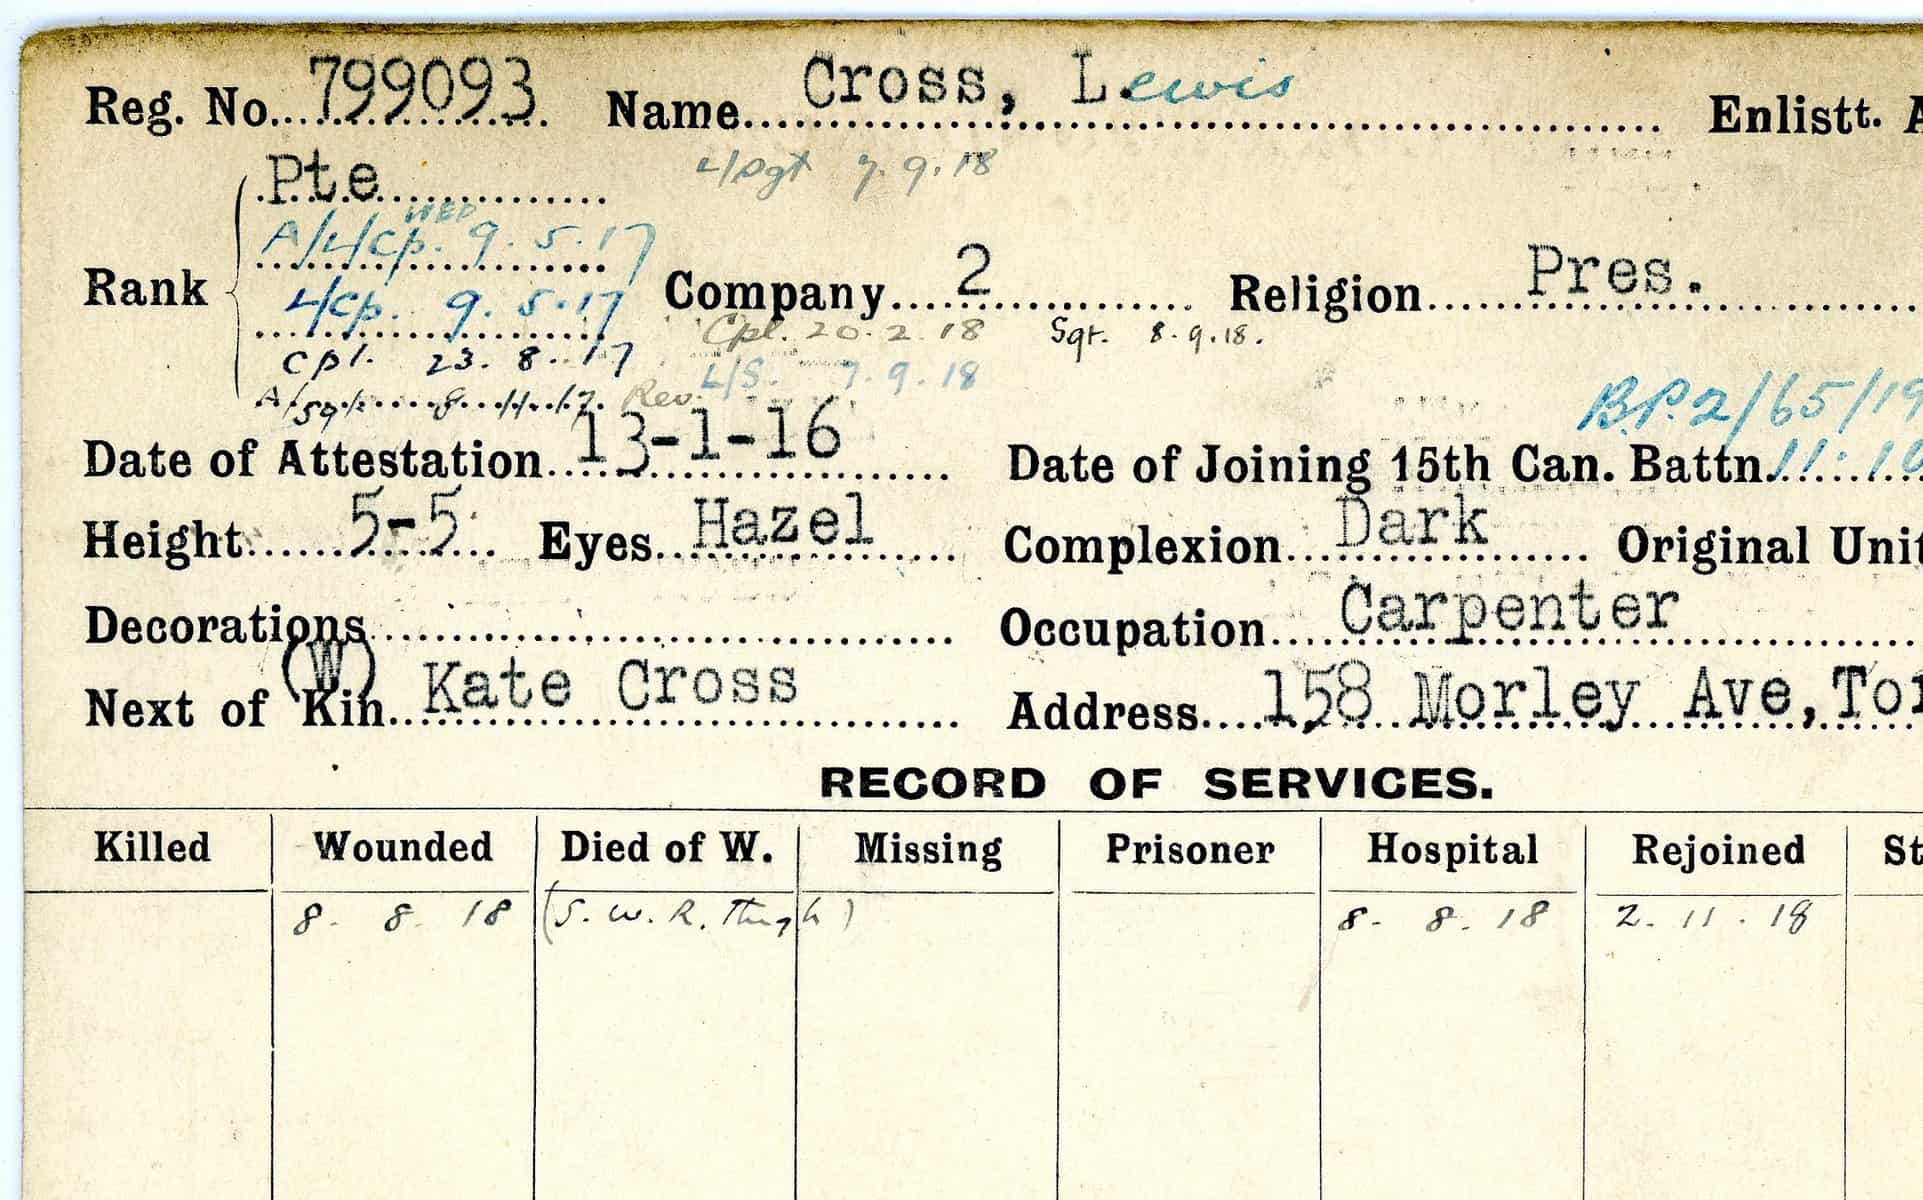 Reg. No. 799093 Name Cross, Lewis Enlistt. A
Pte L/Sgt 7.9.18
A/L/Cp. 9.5.17
Rank L/Cp. 9.5.17 Company 2 Religion Pres.
Cpl. 20.2.18 Sgt. 8.9.18.
Cpl. 23.8.17 L/S. 7.9.18
A/Sgt. 8.11.17. Rev. B.P.2/65/19
Date of Attestation 13-1-16 Date of Joining 15th Can. Battn. 11:10
Height 5-5 Eyes Hazel Complexion Dark Original Unit
Decorations Occupation Carpenter
Next of Kin (W) Kate Cross Address 158 Morley Ave, Tor
RECORD OF SERVICES.
Killed Wounded Died of W. Missing Prisoner Hospital Rejoined St
8. 8. 18 (S. W. R. Thigh) 8. 8. 18 2. 11. 18